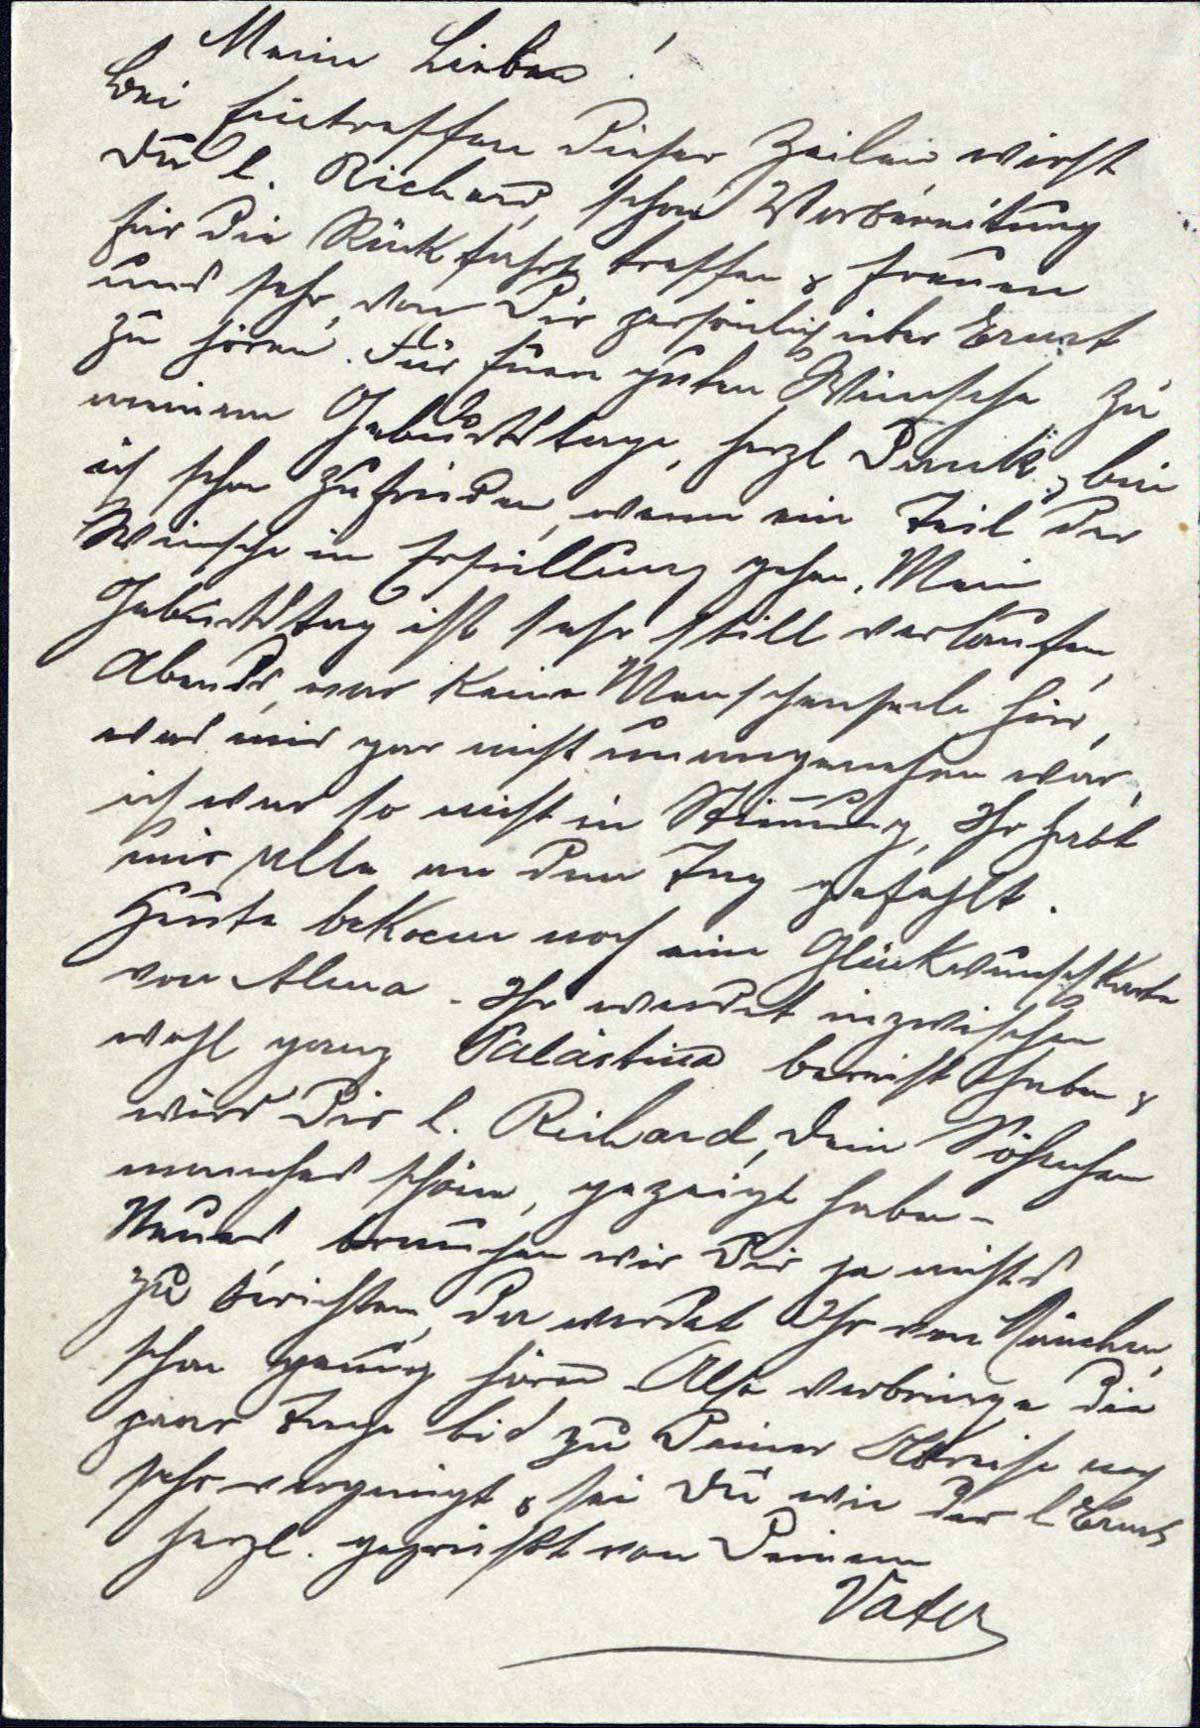 Meine Lieben!
Bei Eintreffen dieser Zeilen wirst
Du l. Richard, schon Vorbereitung
für die Rückfahrt treffen & freuen
uns sehr, von Dir persönlich über Ernst
zu hören. Für Euere guten Wünsche zu
meinem Geburtstage, herzl Dank, bin
ich schon zufrieden, wenn ein Teil der
Wünsche in Erfüllung gehen. Mein
Geburtstag ist sehr still verlaufen,
Abends, war keine Menschenseele hier,
was mir gar nicht unangenehm war,
ich war so nicht in Stimmung, Ihr habt
mir alle an dem Tag gefehlt.
Heute bekom noch eine Glückwunschkarte
von Alma. Ihr werdet inzwischen
wohl ganz Palästina bereist haben &
wird Dir l. Richard, Dein Söhnchen
manches schöne, gezeigt haben -
Neues, brauchen wir Dir ja nichts
zu berichten, da werdet Ihr von
schon genug hören. Also verbringe die
paar Tage bis zu Deiner Abreise noch
sehr vergnügt & sei Du wie der l Ernst
herzl. gegrüßt von Deinem
Vater